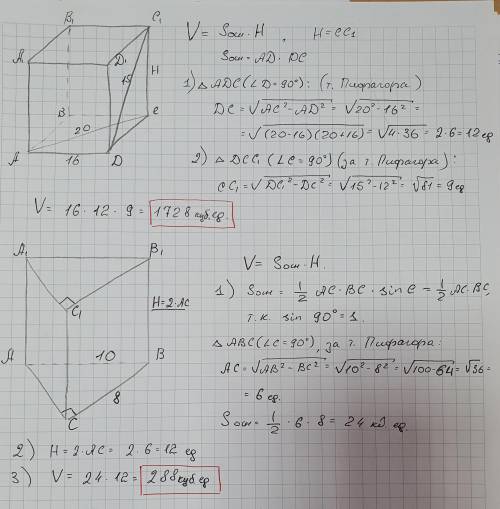 V = Sосн · H, H = CC₁
Sосн = AD · DC
1) △ ADC (∠D = 90°): (т. Пифагора)
DC = √AC² - AD² = √20² - 16² =
= √(20-16)(20+16) = √4·36 = 2·6 = 12 ед
2) △ DCC₁ (∠C = 90°) (за т. Пифагора):
CC₁ = √DC₁² - DC² = √15² - 12² = √81 = 9 ед
V = 16 · 12 · 9 = 1728 куб.ед.
B₁
C₁
A₁
D₁
15
H
B
C
20
A
16
D
A₁
B₁
C₁
H = 2·AC
A
10
B
8
C
V = Sосн · H.
1) Sосн = 1/2 AC · BC · sin C = 1/2 AC · BC,
т.к. sin 90° = 1.
△ ABC (∠C = 90°), за т. Пифагора:
AC = √AB² - BC² = √10² - 8² = √100-64 = √36 =
= 6 ед.
Sосн = 1/2 · 6 · 8 = 24 кв. ед.
2) H = 2·AC = 2·6 = 12 ед
3) V = 24 · 12 = 288 куб.ед